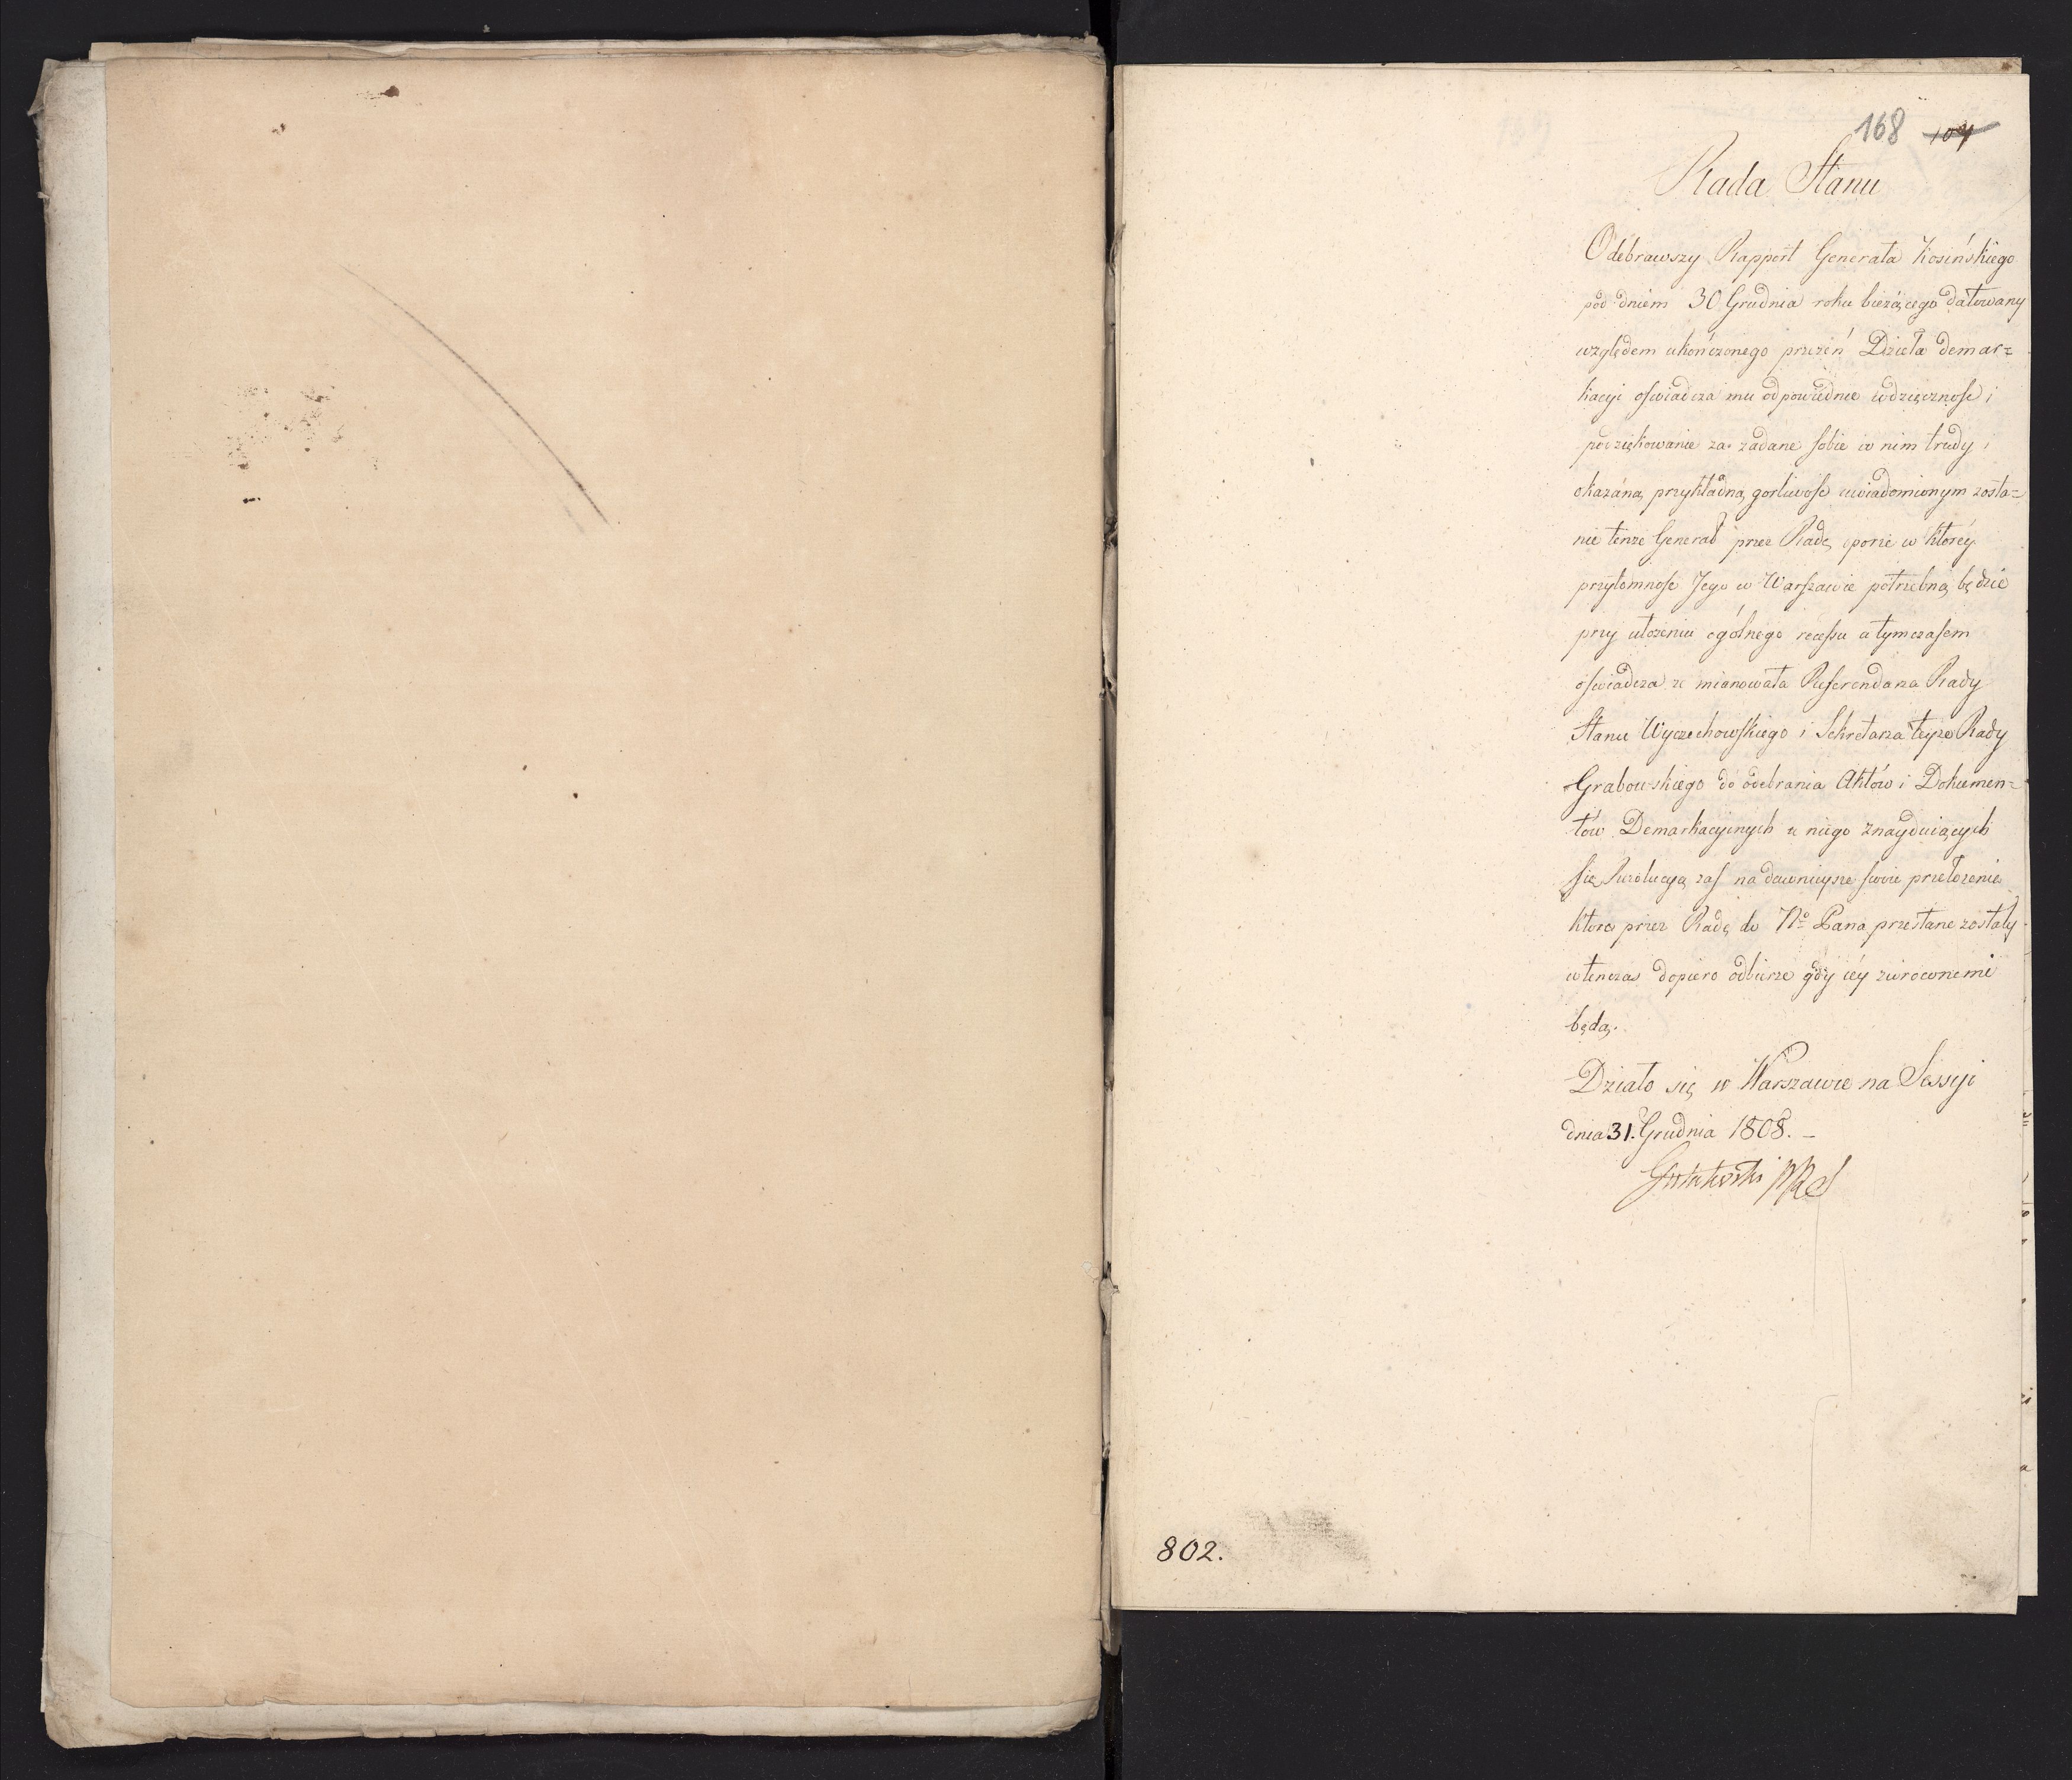 168 104
Rada Stanu
Odebrawszy Rapport Generała Kosińskiego
pod dniem 30 Grudnia roku bieżącego datowany
względem ukończonego przezeń Dzieła demar=
kacyi oswiadcza mu odpowiednie wdzięcznosc i
podziękowanie za zadane sobie w nim trudy i
okazaną przykładną gorliwosc uwiadomionym zosta=
nie tenże Generał przez Radę o porze w ktorey
przytomnosc Jego w Warszawie potrzebną będzie
przy ułożeniu ogólnego recessu a tymczasem
oswiadcza że mianowała Referendarza Rady
Stanu Wyczechowskiego i Sekretarza teyże Rady
Grabowskiego do odebrania Aktów i Dokumen=
tów Demarkacyinych u niego znayduiących
się Rezolucyą zas na dawnieysze swoie przełożenie
ktore przez Radę do No Pana przesłane zostały
wtenczas dopiero odbierze gdy iéy zwroconemi
będą.
Działo się w Warszawie na Sessyi
dnia 31. Grudnia 1808. –
Gutakowski PRS
802.